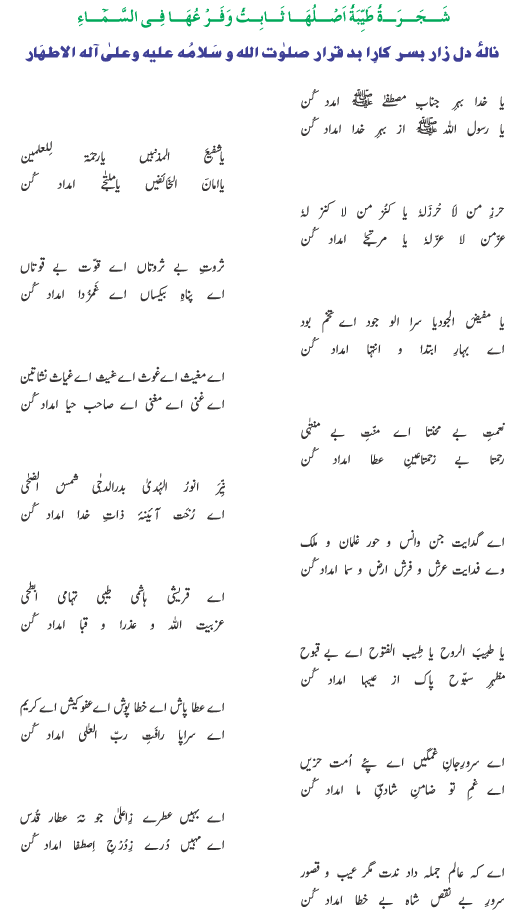 شَجَرَةٌ طَيِّبَةٌ اَصْلُهَا ثَابِتٌ وَفَرْعُهَا فِی السَّمَاءِ
نالۂ دل زار بسر کارِا بد قرار صلوٰت اللہ و سَلامُہ علیہ وعلیٰ آلہ الاطہار
یا خدا بہرِ جنابِ مصطفےٰ ﷺ امدد کُن
یا رسول اللہ ﷺ از بہرِ خدا امداد کُن
یاشفیعَ المذنبیں یارحمۃ لِّلعلمین
یاامانَ الخائفیں یاملتجےٰ امداد کُن
حرزِ من لَا حُرزَلہٗ یا کنزَ من لا کنز لہٗ
عزّمن لا عزّلہٗ یا مرتجےٰ امداد کُن
ثروتِ بے ثروتاں اے قوّت بے قوتاں
اے پناہِ بیکساں اے غمزدا امداد کُن
یا مفیضَ الجودیا سرا الو جود اے تخم بود
اے بہارِ ابتدا و انتہا امداد کُن
اے مغیث اےغوث اےغیث اےغیاث نشاتین
اےغنی اے مغنی اے صاحب حیا امداد کُن
نعمتِ بے محنتا اے منّتِ بے منتہٰی
رحمتا بے زحمتاعینِ عطا امداد کُن
نیّرَ انورُ الہُدیٰ بدرالدجٰی شمس الضحٰی
اے رُخت آئینۂ ذاتِ خدا امداد کُن
اے گدایت جن وانس و حور غلمان و ملک
وے فدایت عرش و فرش ارض و سما امداد کُن
اے قریشی ہاشمی طیّبی تہامی ابطحی
عزبیت اللہ و عذرا و قبا امداد کُن
یا طبیبَ الروح یا طیب الفتوح اے بے قبوح
مظہرِ سبّوح پاک از عیبہا امداد کُن
اے عطا پاش اے خطا پوش اےعفوکیش اےکریم
اے سراپا رافَتِ ربّ العلٰی امداد کُن
اے سرورِجانِ غمگیں اے پئے اُمت حزیں
اے غمِ تو ضامنِ شادیِّ ما امداد کُن
اے بہیں عطرے زاعلیٰ جو نۂ عطار قُدس
اے مہیں دُرے زِدُرجِ اِصطفا امداد کُن
اے کہ عالم جملہ داد ندت مگر عیب و قصور
سرورِ بے نقص شاہِ بے خطا امداد کُن